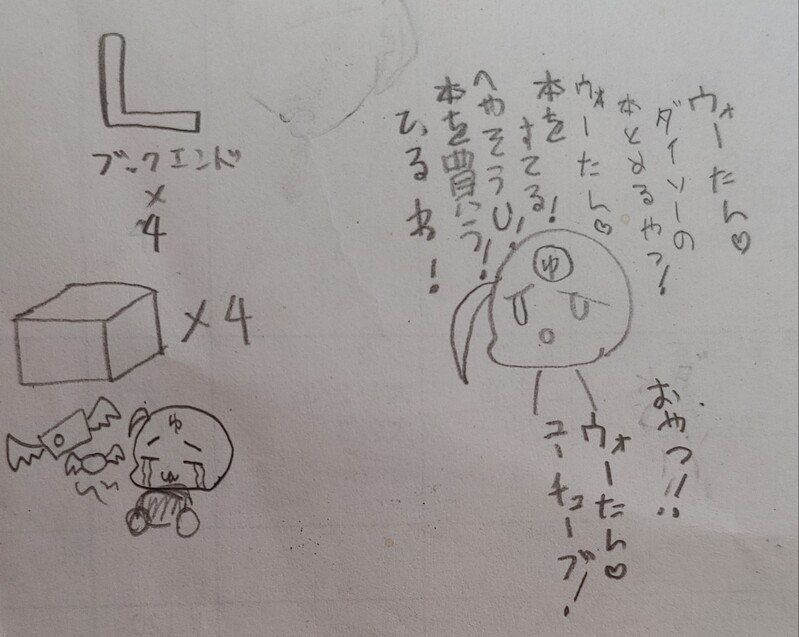 ウォーたん♡
ダイソーの
本とめるやつ!
ウォーたん♡
本を
すてる!
へやそうじ!
本を買う!
ひるね!
ゆ
おやつ!!
ウォーたん♡
ユーチューブ!
ブックエンド
×
4
×4
ゆ